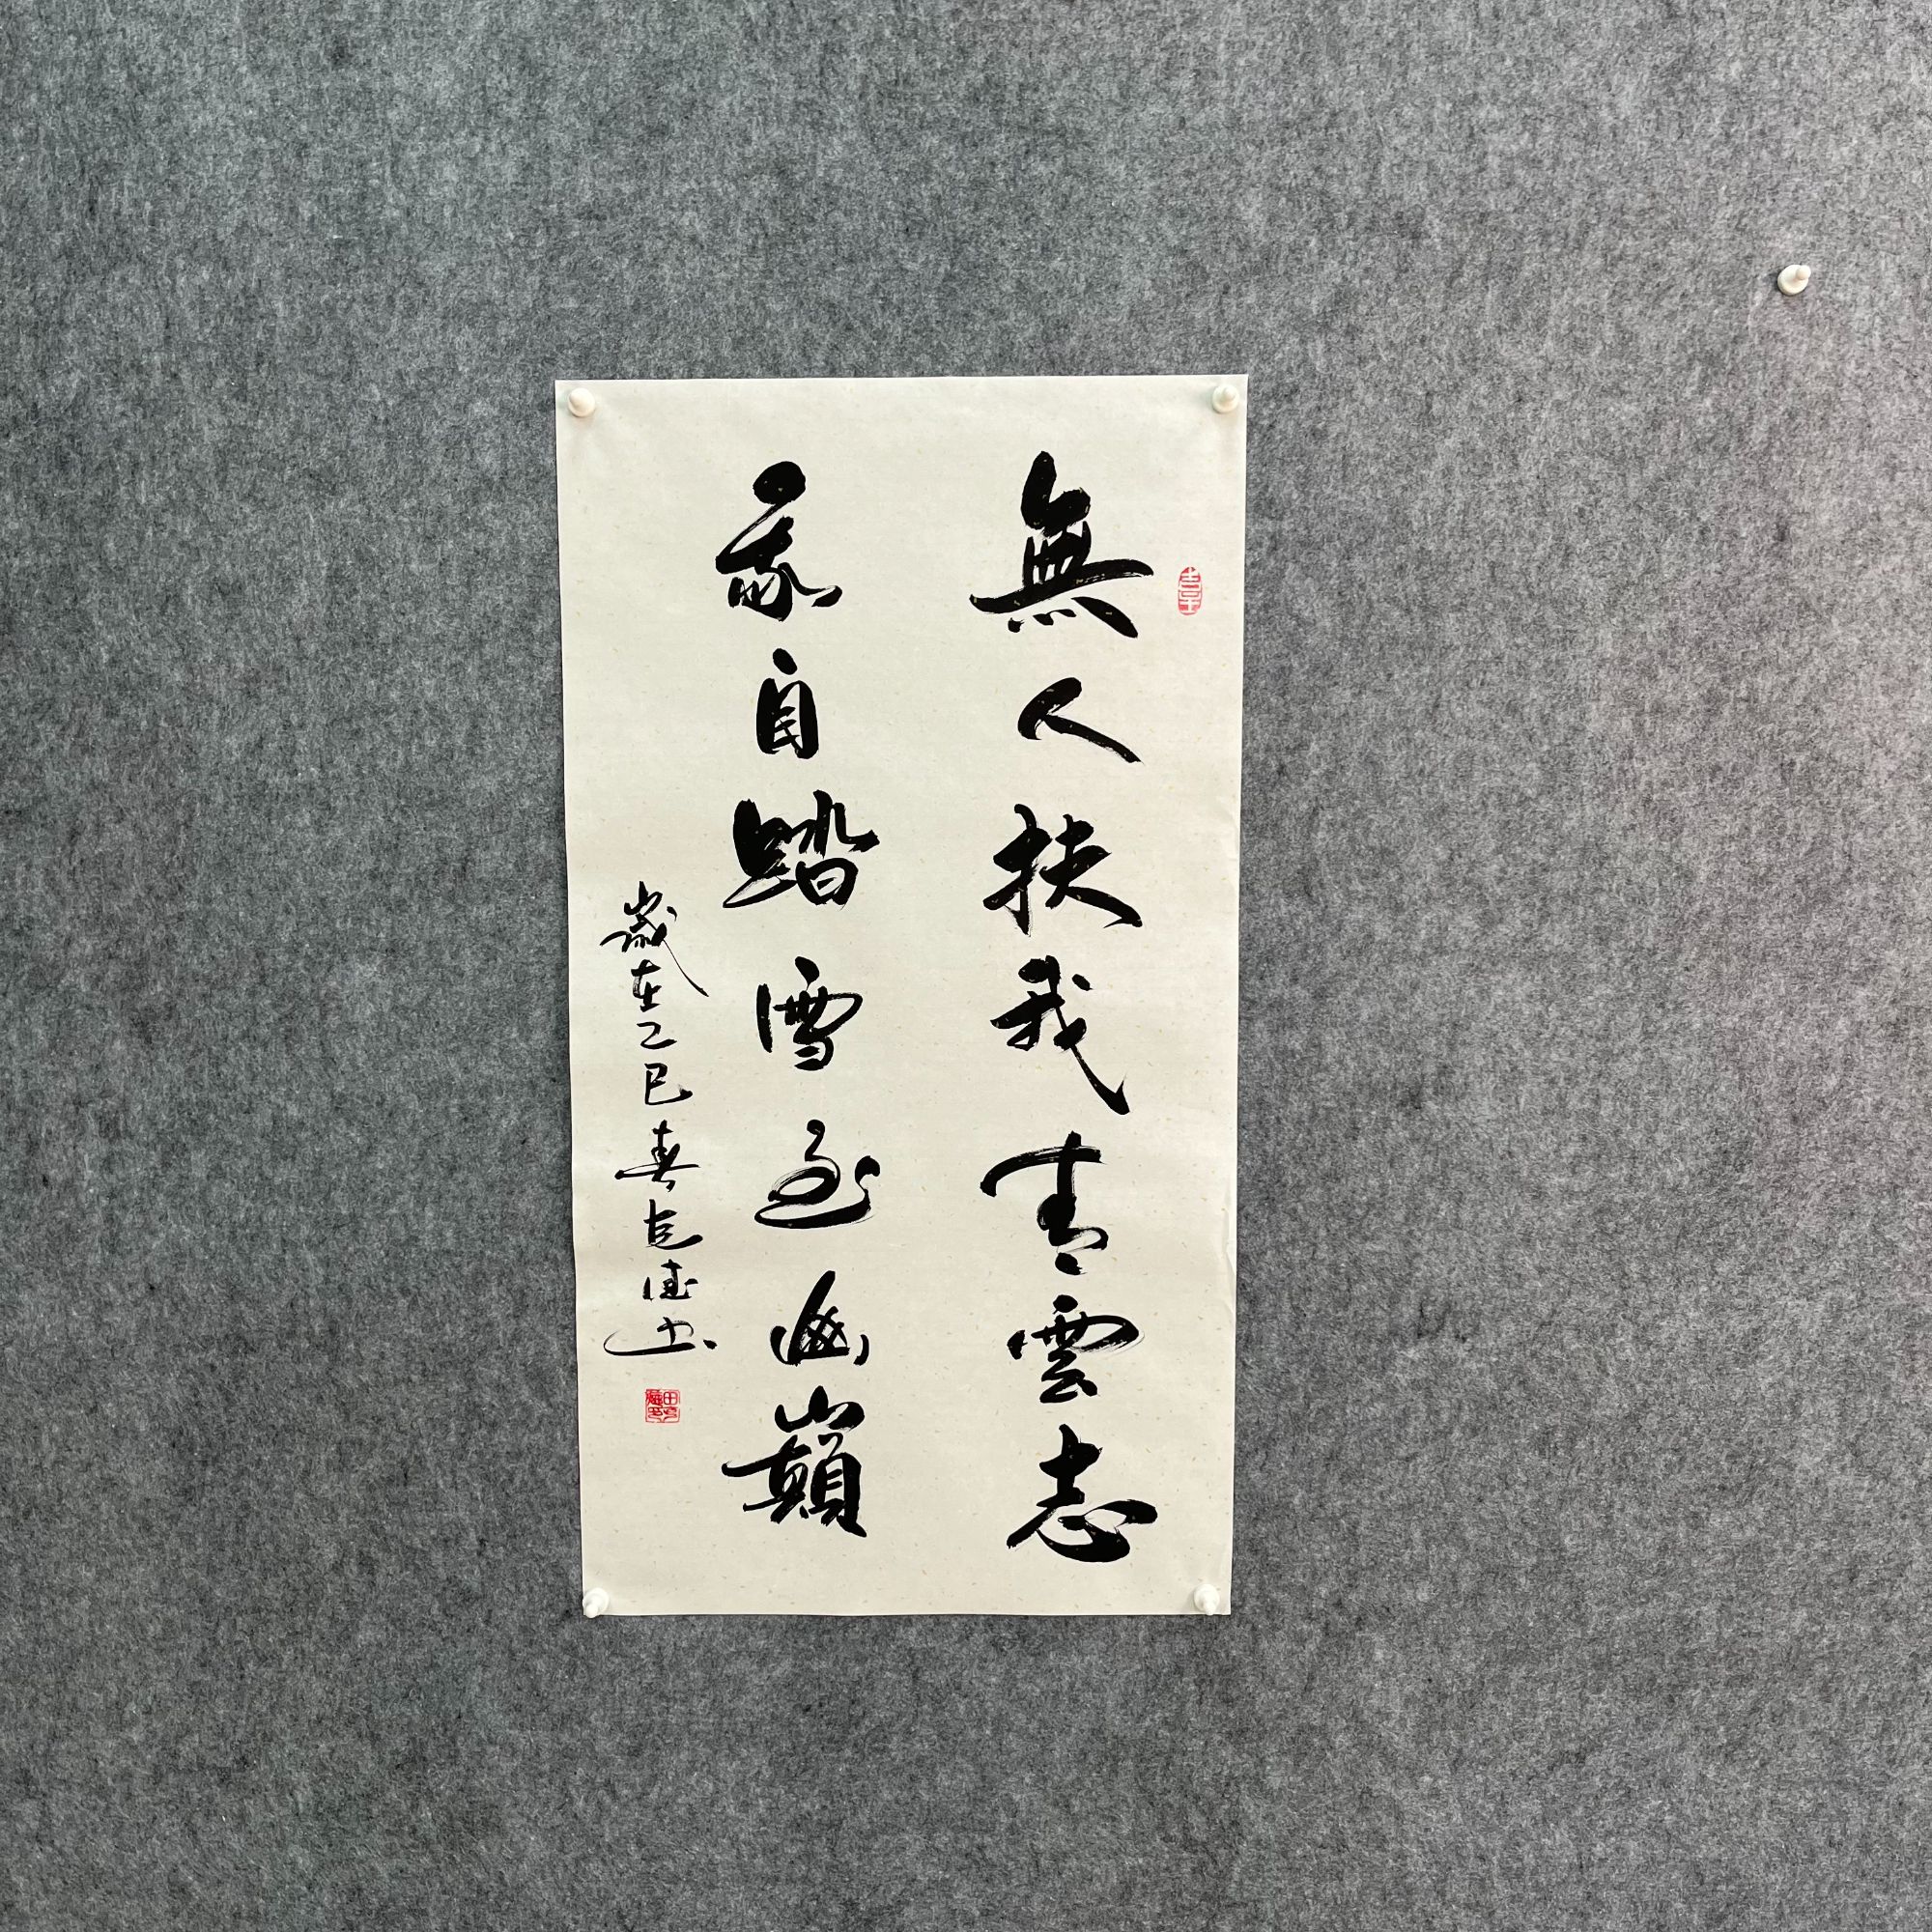 無人扶我青雲志
我自踏雪至幽巔
歲在乙巳春月德書